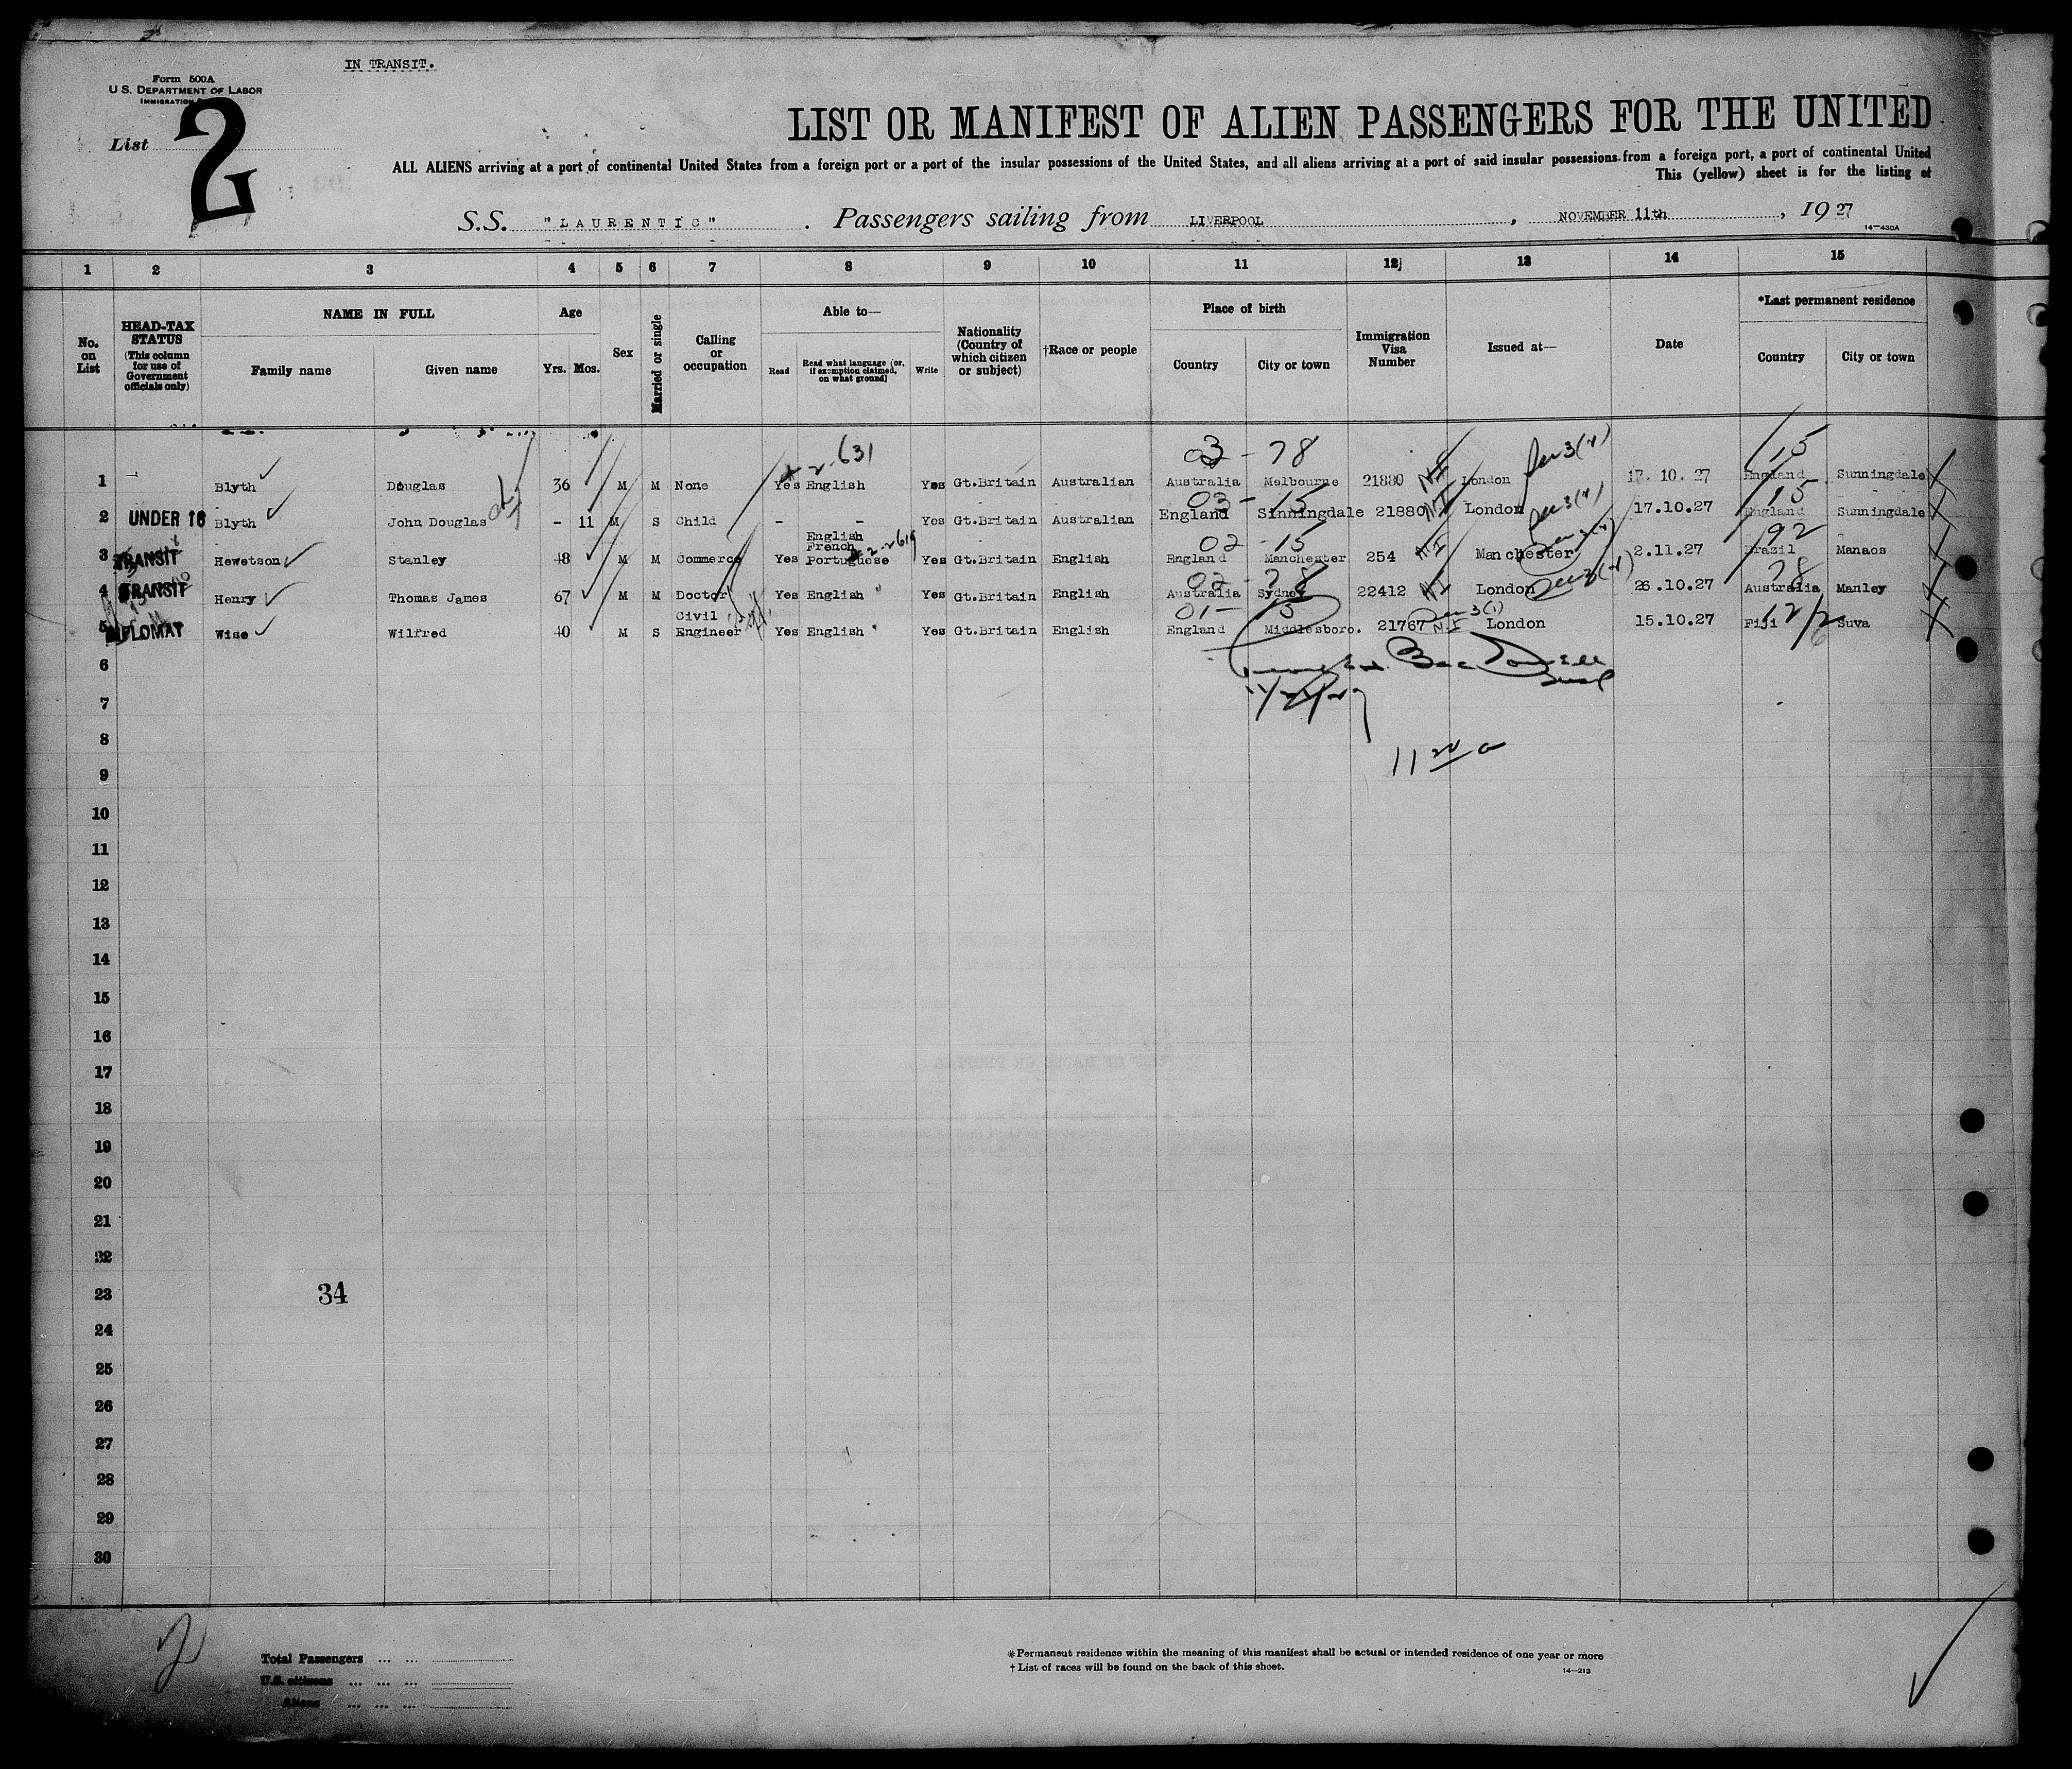 IN TRANSIT.
Form 500A
U S. DEPARTMENT OF LABOR
IMMIGRATION
List 2
LIST OR MANIFEST OF ALIEN PASSENGERS FOR THE UNITED
ALL ALIENS arriving at a port of continental United States from a foreign port or a port of the insular possessions of the United States, and all aliens arriving at a port of said insular possessions from a foreign port, a port of continental United
This (yellow) sheet is for the listing of
S.S. "LAURENTIC". Passengers sailing from LIVERPOOL, NOVEMBER 11th, 1927
14—430A
1 2 3 4 5 6 7 8 9 10 11 12 13 14 15
No. on List
HEAD-TAX STATUS (This column for use of Government officials only)
NAME IN FULL
Family name Given name
Age
Yrs. Mos.
Sex
Married or single
Calling or occupation
Able to—
Read Read what language (or, if exemption claimed, on what ground) Write
Nationality (Country of which citizen or subject)
†Race or people
Place of birth
Country City or town
Immigration Visa Number
Issued at—
Date
*Last permanent residence
Country City or town
2-631 03 - 78 15
1 Blyth Douglas 36 M M None Yes English Yes Gt.Britain Australian Australia Melbourne 21880 NI London 17.10.27 England Sunningdale
03 - 15 15
2 UNDER 16 Blyth John Douglas - 11 M S Child - - Yes Gt.Britain Australian England Sinningdale 21880 NI London 17.10.27 England Sunningdale
English
French 2-2619 02 - 15 92
3 TRANSIT Hewetson Stanley 48 M M Commerce Yes Portuguese Yes Gt.Britain English England Manchester 254 NI Manchester 2.11.27 Brazil Manaos
02 - 78 78
4 TRANSIT Henry Thomas James 67 M M Doctor Yes English Yes Gt.Britain English Australia Sydney 22412 NI London 26.10.27 Australia Manley
Civil 01-
5 DIPLOMAT Wise Wilfred 40 M S Engineer Yes English Yes Gt.Britain English England Middlesboro. 21767 NI London 15.10.27 Fiji Suva
6
7
8
9
10
11
12
13
14
15
16
17
18
19
20
21
22
23
34
24
25
26
27
28
29
30
2
Total Passengers ... ...
U.S. citizens ... ... ...
Aliens ... ... ...
*Permanent residence within the meaning of this manifest shall be actual or intended residence of one year or more
†List of races will be found on the back of this sheet.
14—213